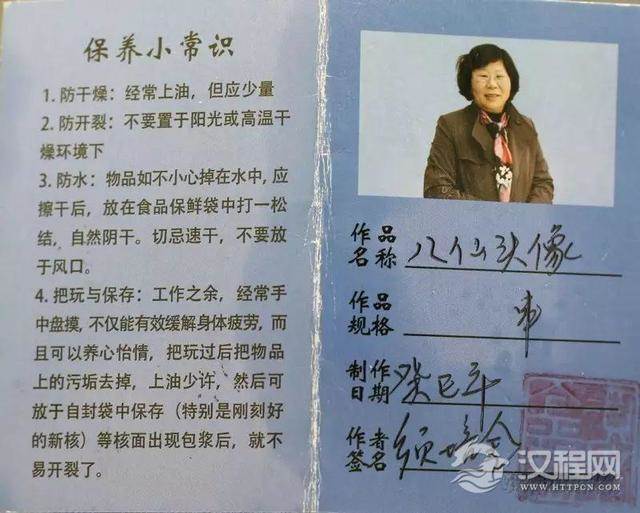 保养小常识
1. 防干燥：经常上油，但应少量
2. 防开裂：不要置于阳光或高温干
燥环境下
3. 防水：物品如不小心掉在水中，应
擦干后，放在食品保鲜袋中打一松
结，自然阴干。切忌速干，不要放
于风口。
4. 把玩与保存：工作之余，经常手
中盘摸，不仅能有效缓解身体疲劳，而
且可以养心怡情，把玩过后把物品
上的污垢去掉，上油少许，然后可
放于自封袋中保存（特别是刚刻好
的新核）等核面出现包浆后，就不
易开裂了。
作品名称 八仙头像
作品规格 串
制作日期 癸巳年
作者签名
汉程网
WWW.HTTPCN.COM